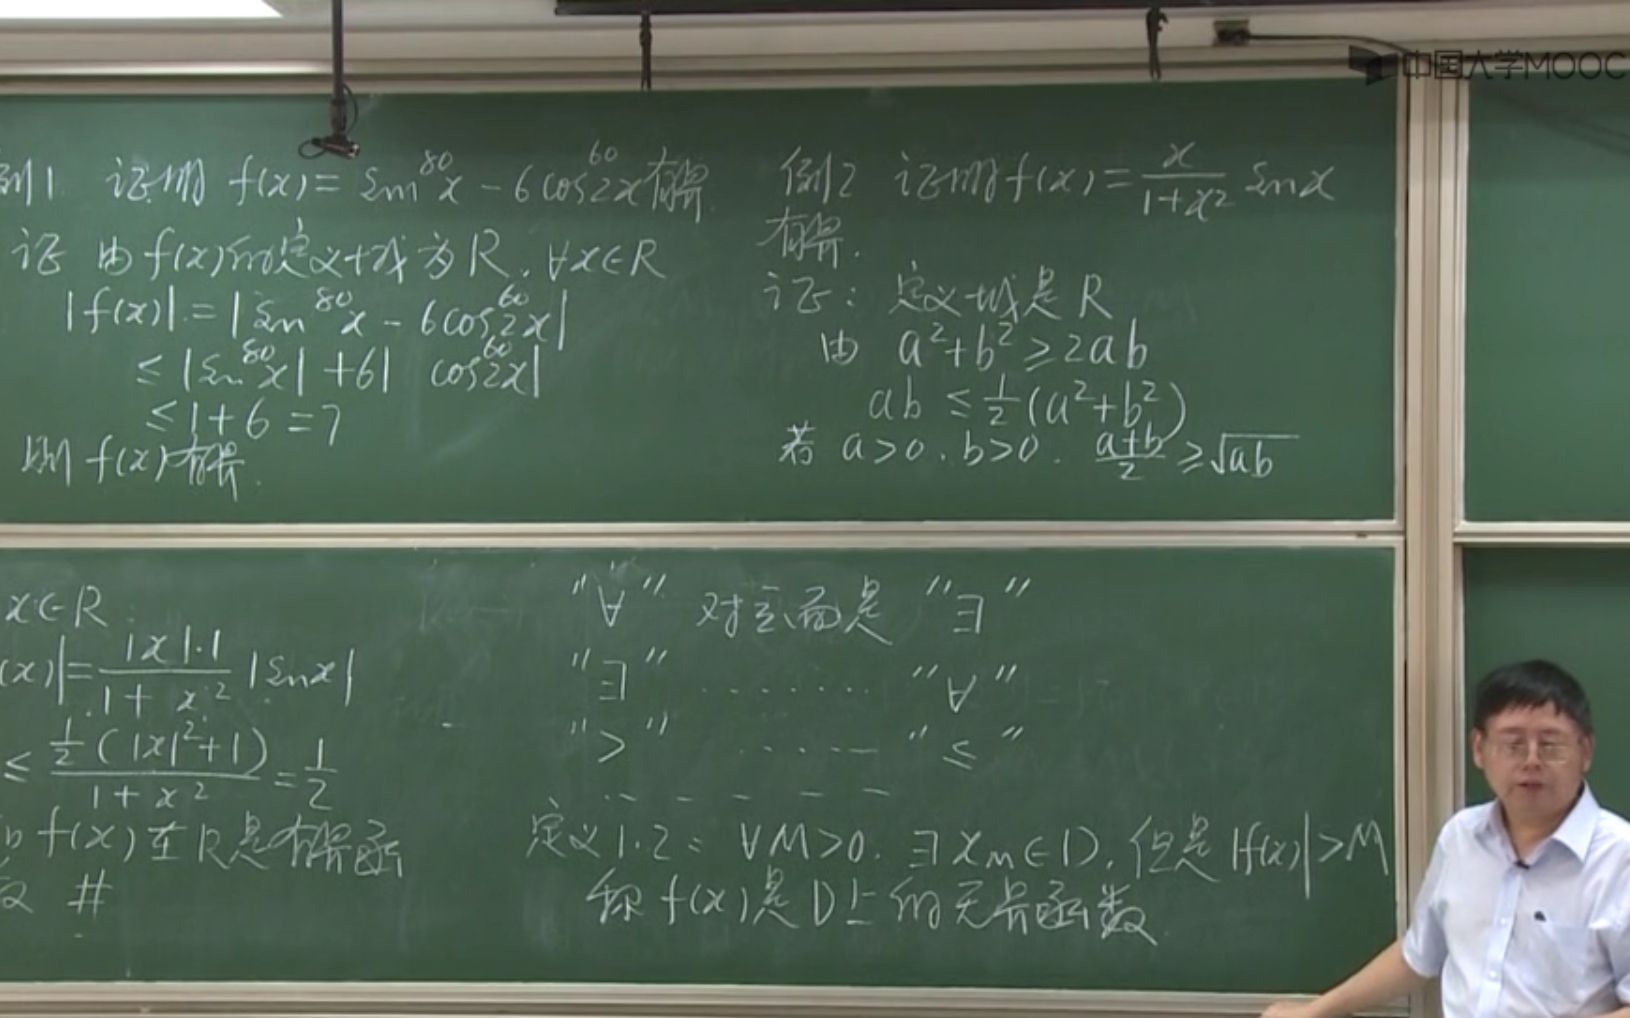 中国大学MOOC
例1. 证明 f(x) = sin⁸⁰x - 6cos⁶⁰2x有界.
证 由f(x)的定义域为R. ∀x∈R
|f(x)| = |sin⁸⁰x - 6cos⁶⁰2x|
≤ |sin⁸⁰x| + 6| cos⁶⁰2x|
≤ 1+6 = 7
则 f(x)有界.
例2 证明f(x) = x/(1+x²) sinx
有界.
证: 定义域是R
由 a²+b² ≥ 2ab
ab ≤ 1/2(a²+b²)
若 a>0. b>0. (a+b)/2 ≥ √ab
x∈R
(x)| = |x|·1/(1+x²) |sinx|
≤ 1/2(|x|²+1)/(1+x²) = 1/2
f(x)在R是有界函
数 #
"∀" 对立面是 "∃"
"∃" ....... "∀"
">" ..... "≤"
定义1.2: ∀M>0. ∃x_m∈D, 但是|f(x)|>M
称f(x)是D上的无界函数.